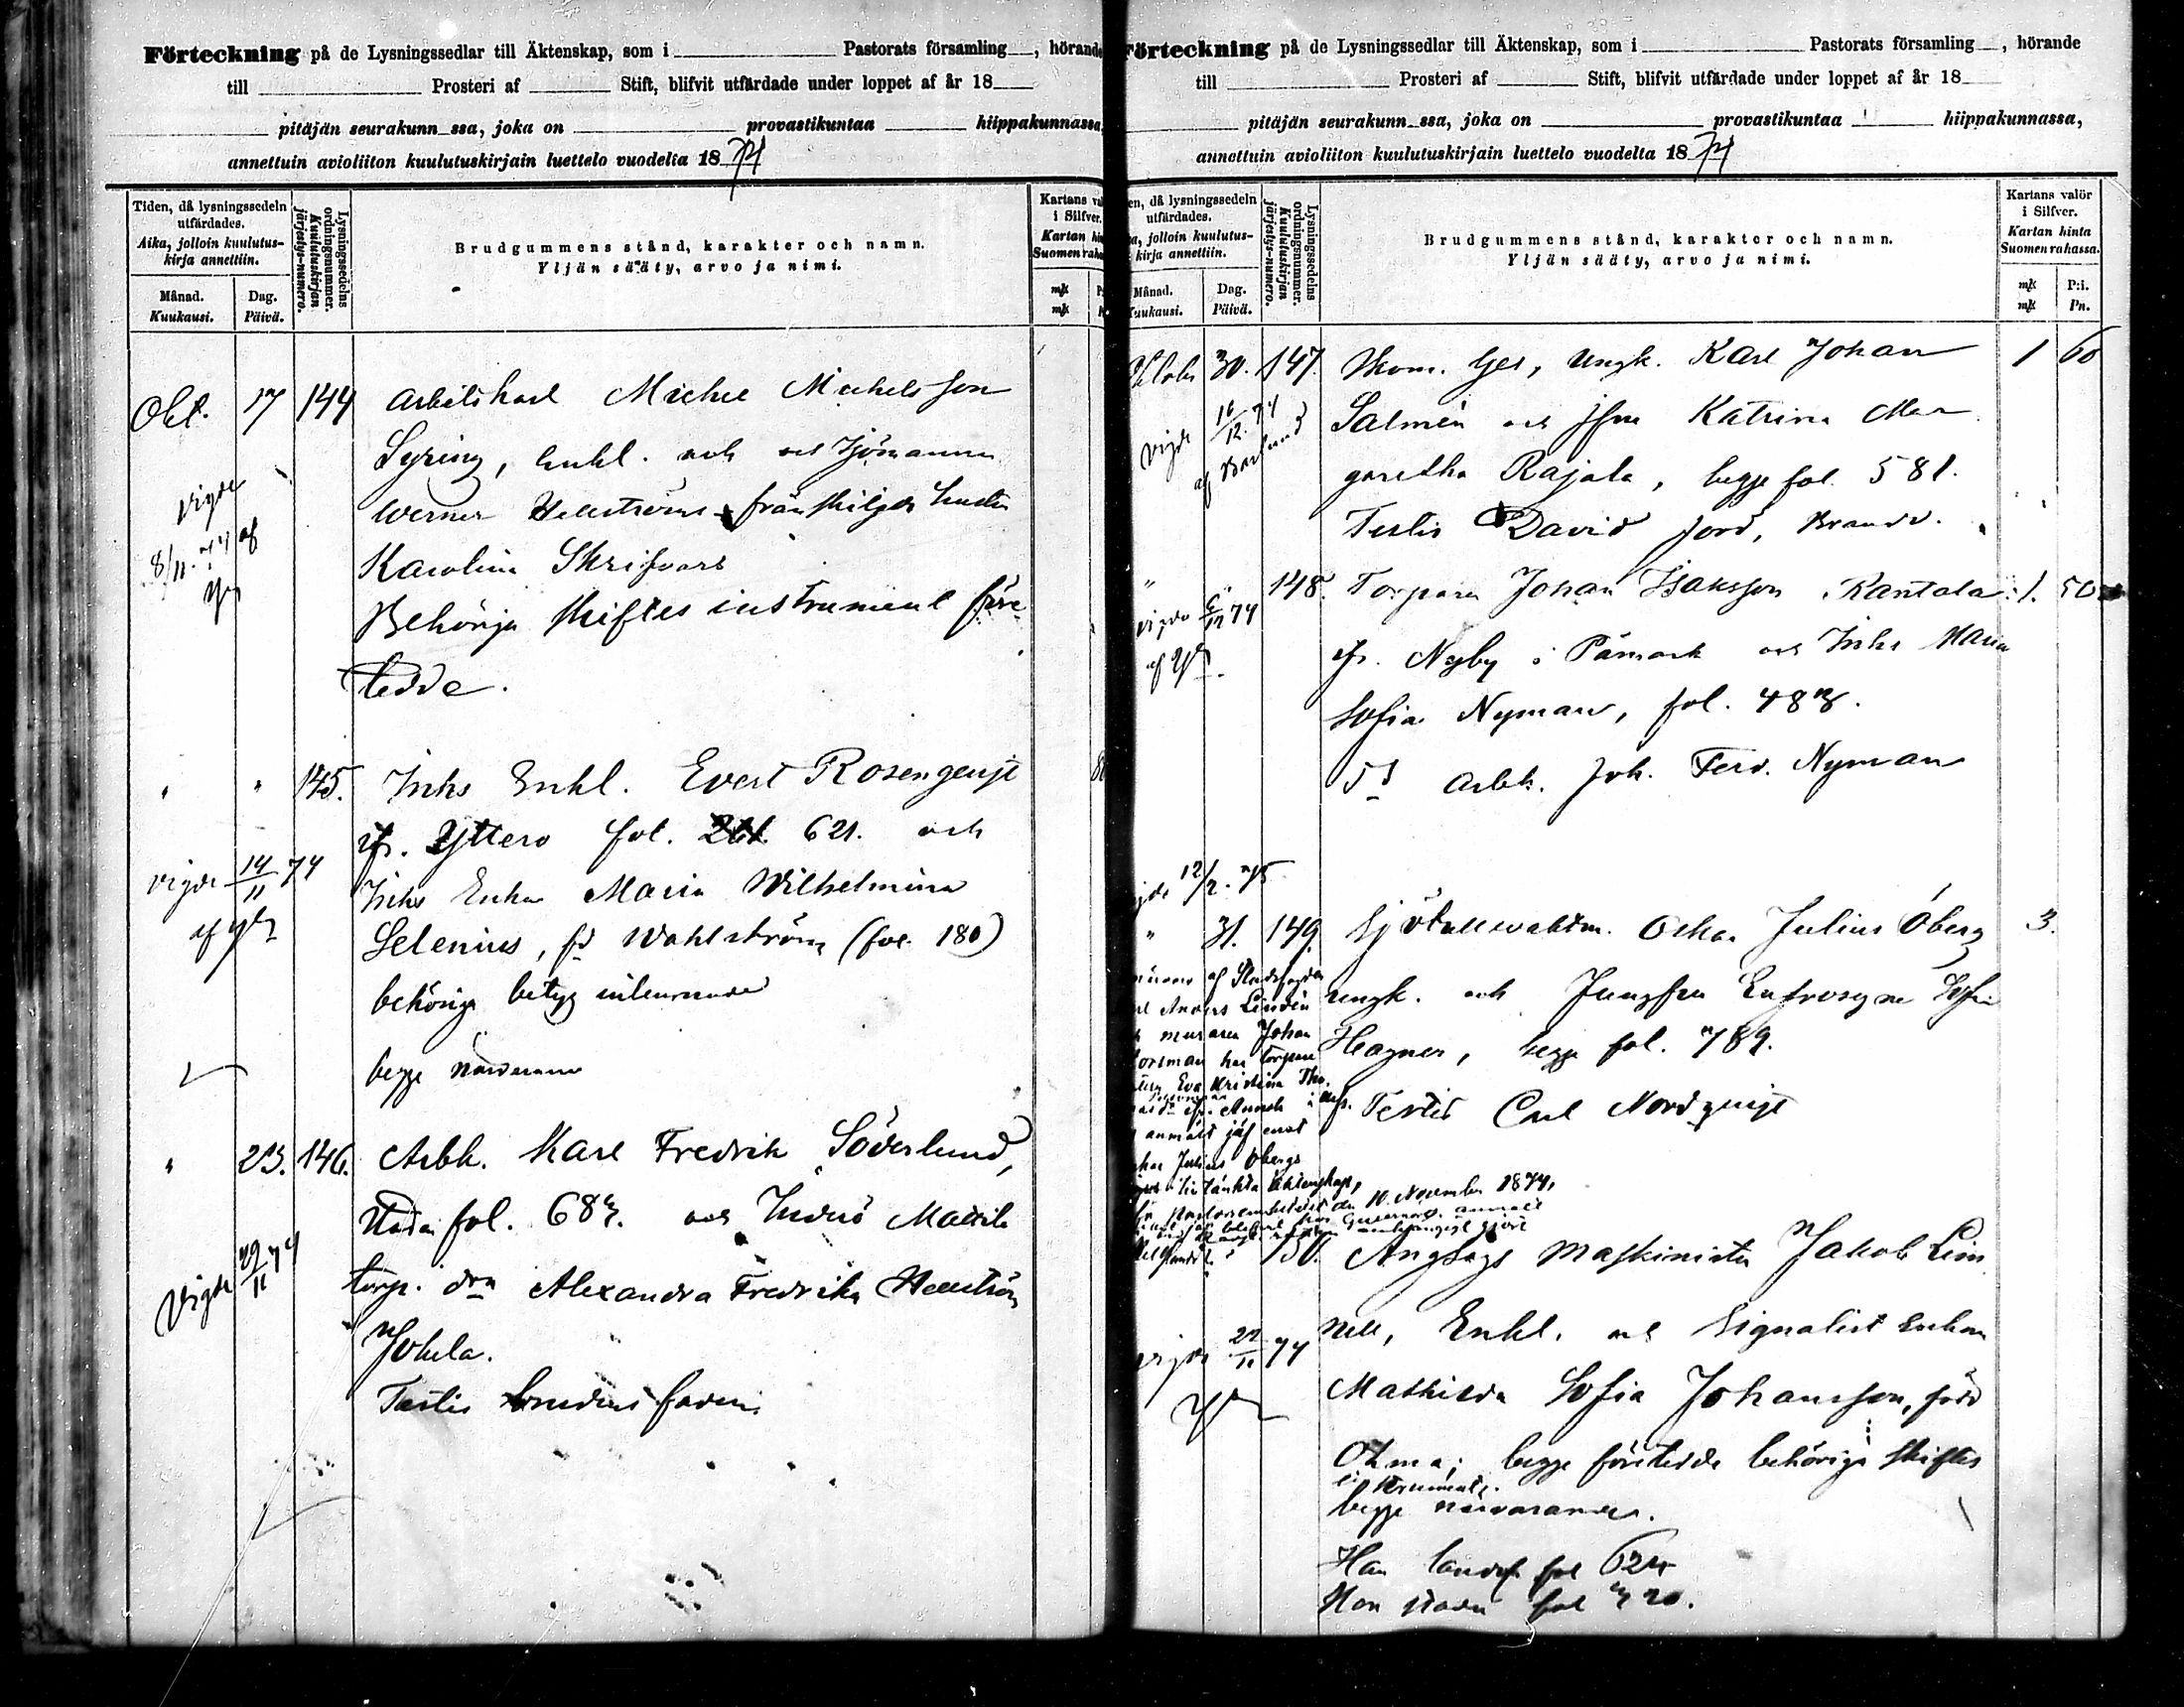 Förteckning på de Lysningssedlar till Äktenskap, som i Pastorats församling, hörande
till Prosteri af Stift, blifvit utfärdade under loppet af år 18
pitäjän seurakunn ssa, joka on provastikuntaa hiippakunnassa,
annettuin avioliiton kuulutuskirjain luettelo vuodelta 1874
Tiden, då lysningssedeln utfärdades.
Aika, jolloin kuulutus-
kirja annettiin.
Månad.
Kuukausi.
Dag.
Päivä.
Lysningssedelns ordningsnummer.
Kuulutuskirjan järjestys-numero.
Brudgummens stånd, karakter och namn.
Yljän sääty, arvo ja nimi.
Kartans val
i Silfver.
Kartan hin
Suomen raha
mk
mk
Okt. 17 144 Arbetskarl Michel Michelsson
Syring, enkl. och Sjömannen
Werner Hellströms frånskiljda hustru
Karolina Skrifvars
Behörja skiftesinstrument före
tedde.
vigde
8/11. 74 af
" " 145. Inhs Enkl. Evert Rosengenst
fr. Ytterö fol. 621. och
Inhs Enka Maria Wilhelmina
Selenius, fd Wahlström (fol. 180)
behöriga betyg
begge närvarande
vigde 14/11 74
af
" 23. 146. Arbk. Karl Fredrik Söderlund,
staden fol. 687. och
torp. dra Alexandra Fredrika Hellström
Jokela.
Testis brudens fader.
Vigde 29/11 74
Förteckning på de Lysningssedlar till Äktenskap, som i Pastorats församling, hörande
till Prosteri af Stift, blifvit utfärdade under loppet af år 18
pitäjän seurakunn ssa, joka on provastikuntaa hiippakunnassa,
annettuin avioliiton kuulutuskirjain luettelo vuodelta 1874
en, då lysningssedeln
utfärdades.
a, jolloin kuulutus-
kirja annettiin.
Månad.
Kuukausi.
Dag.
Päivä.
Lysningssedelns ordningsnummer.
Kuulutuskirjan järjestys-numero.
Brudgummens stånd, karakter och namn.
Yljän sääty, arvo ja nimi.
Kartans valör
i Silfver.
Kartan hinta
Suomen rahassa.
mk P:i.
mk Pn.
30. 147. Skom. Ges, Ungk. Karl Johan 1 60
Salmén och Jfru Katrina Mar
garetha Rajala, begge fol. 581.
Testis David Jord, Brandv.
vigde 16/12. 74
" " 148. Torparen Johan Isaksson Rantala 1. 50
fr. Nyby i Påmark och Inhs Maria
Sofia Nyman, fol. 483.
Ts Arbk. Joh. Ferd. Nyman
vigde 6/12 74
af
12/2. 75
" 31. 149. Sjötullwaktm. Oskar Julius Öberg 3.
ungk. och Jungfru Eufrosyne Sofia
Hagner, begge fol. 789.
Testis Carl Nordquist
af Stadsfogden
Anders Lindén
muraren Johan
har torpare
Eva Kristina
anmält jäf emot
Julius Öbergs
tilltänkta äktenskap,
den 10. November 1874,
150. Ånglags maskinisten Jakob Lin
nell, Enkl. och Signalist Enkan
Mathilda Sofia Johansson, född
Ohma; begge företedde behöriga skiftes
instrument.
begge närvarande.
Han landsf fol 624
Hon staden fol 720.
vigde 22/11 74